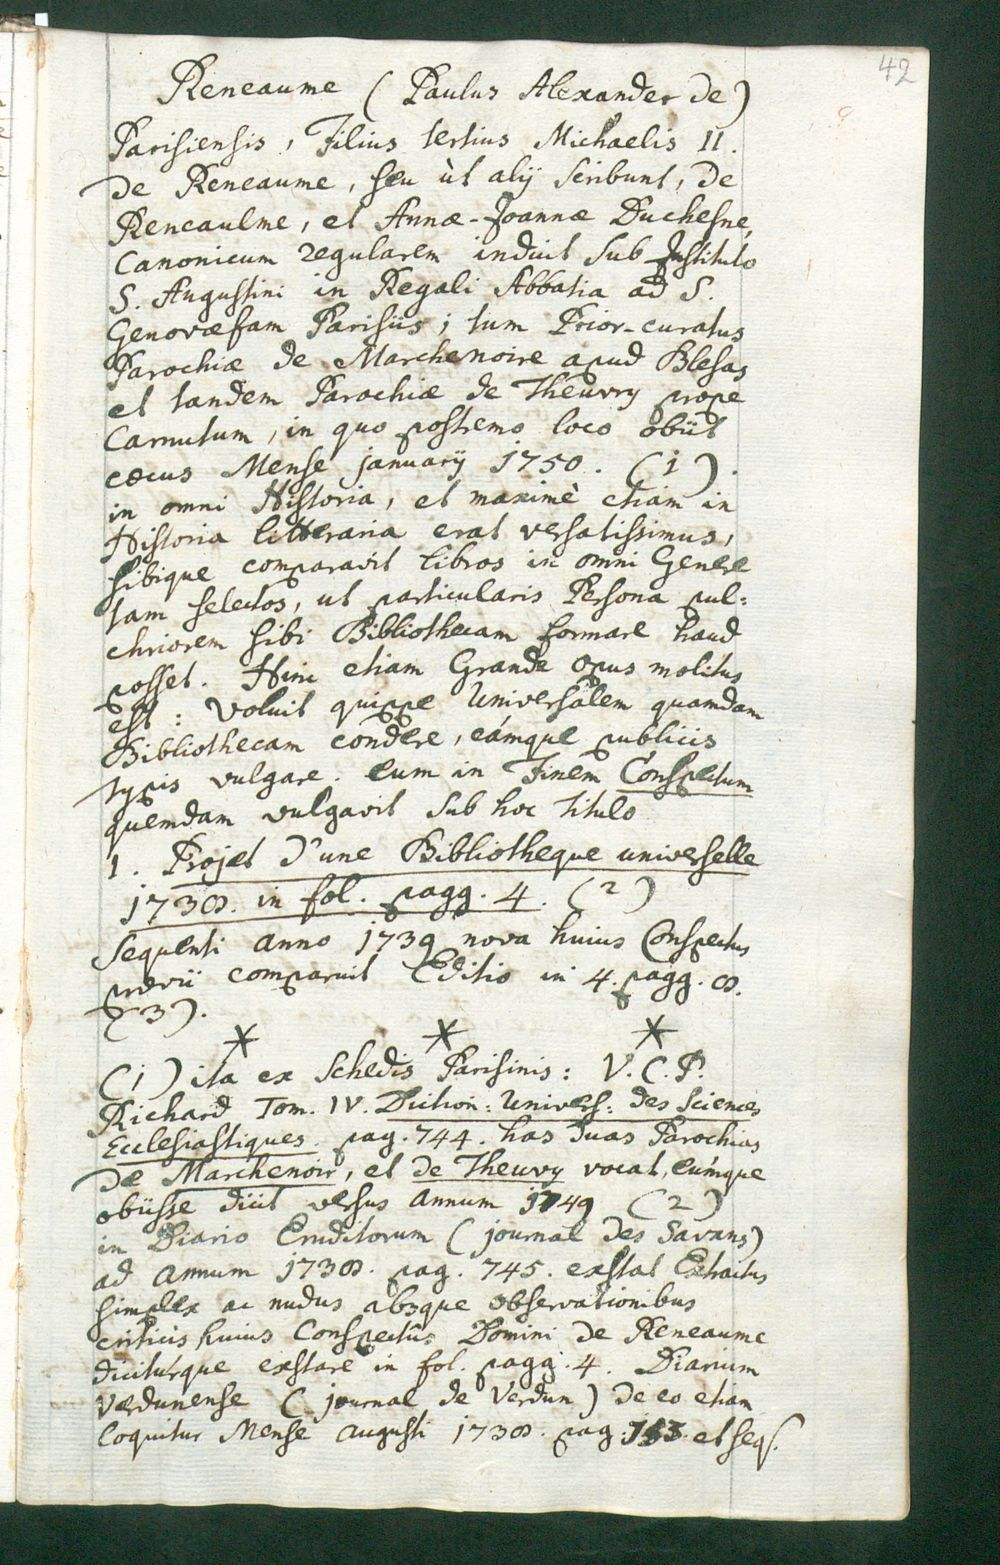 42
Reneaume (Paulus Alexander de)
Parisiensis, Filius tertius Michaelis II.
de Reneaume, seu ùt alij scribunt, de
Reneaulme, et Annæ-Joannæ Duchesne,
Canonicum regularem induit sub Instituto
S. Augustini in Regali Abbatia ad S.
Genovæfam Parisiis; tum Prior-curatus
Parochiæ de Marchenoire apud Blesas
et tandem Parochiæ de Theuvry prope
Carnutum, in quo postremo loco obiit
cœcus Mense januarij 1750. (1).
in omni Historia, et maximè etiam in
Historia litteraria erat versatissimus,
sibique comparavit libros in omni Genere
tam selectos, ut particularis Persona pul=
chriorem sibi Bibliothecam formare haud
posset. Hinc etiam Grande opus molitus
est: voluit quippe Universalem quamdam
Bibliothecam condere, eámque publicis
typis vulgare. eum in Finem Conspectum
quemdam vulgavit sub hoc titulo
1. Projet d'une Bibliotheque universelle
1738. in fol. pagg. 4. (2)
sequenti anno 1739 nova huius Conspectus
prævii comparuit Editio in 4. pagg. 8.
(3).
* * *
(1) ita ex schedis Parisinis: V.C.P.
Richard Tom. IV. Diction: Univers: des Sciences
Ecclesiastiques. pag. 744. has duas Parochias
de Marchenoir, et de Theuvy vocat, eúmque
obiisse dicit versus annum 1749 (2)
in Diario Eruditorum (journal des Savans)
ad annum 1738. pag. 745. exstat Extractus
simplex ac nudus absque observationibus
criticis huius Conspectûs Domini de Reneaume
dicitúrque exstare in fol. pagg. 4. Diarium
Verdunense (journal de Verdun) de eo etiam
loquitur Mense augusti 1738. pag. et seq.